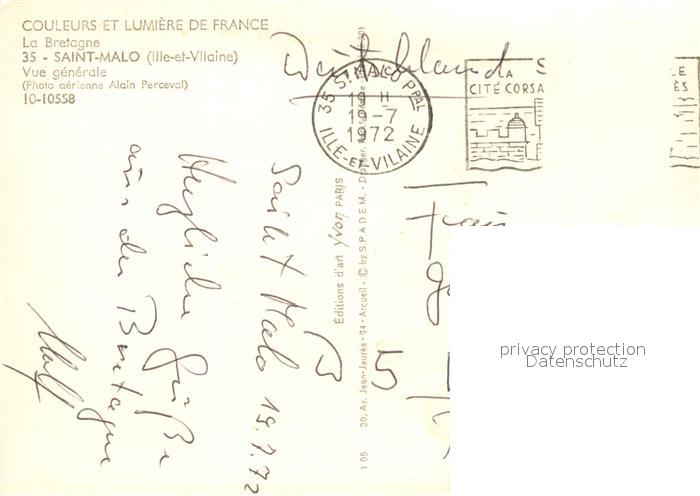 COULEURS ET LUMIÈRE DE FRANCE
La Bretagne
35 - SAINT-MALO (Ille-et-Vilaine)
Vue générale
(Photo aérienne Alain Perceval)
10-10558
Deutschland
35 St MALO PPAL
19 H
19-7
1972
ILLE-ET-VILAINE
LA
CITÉ CORSA
Saint Malo 19.7.72
Herzliche Grüße
aus der Bretagne
Éditions d'art yvon PARIS
30, Av. Jean-Jaurès-94-Arcueil - © by S.P.A.D.E.M.
1 05
5
privacy protection
Datenschutz